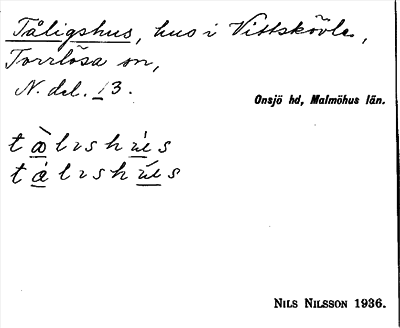 Tåligshus, hus i Vittskövle,
Torrlösa sn,
N. del. 13.
Onsjö hd, Malmöhus län.
NILS NILSSON 1936.